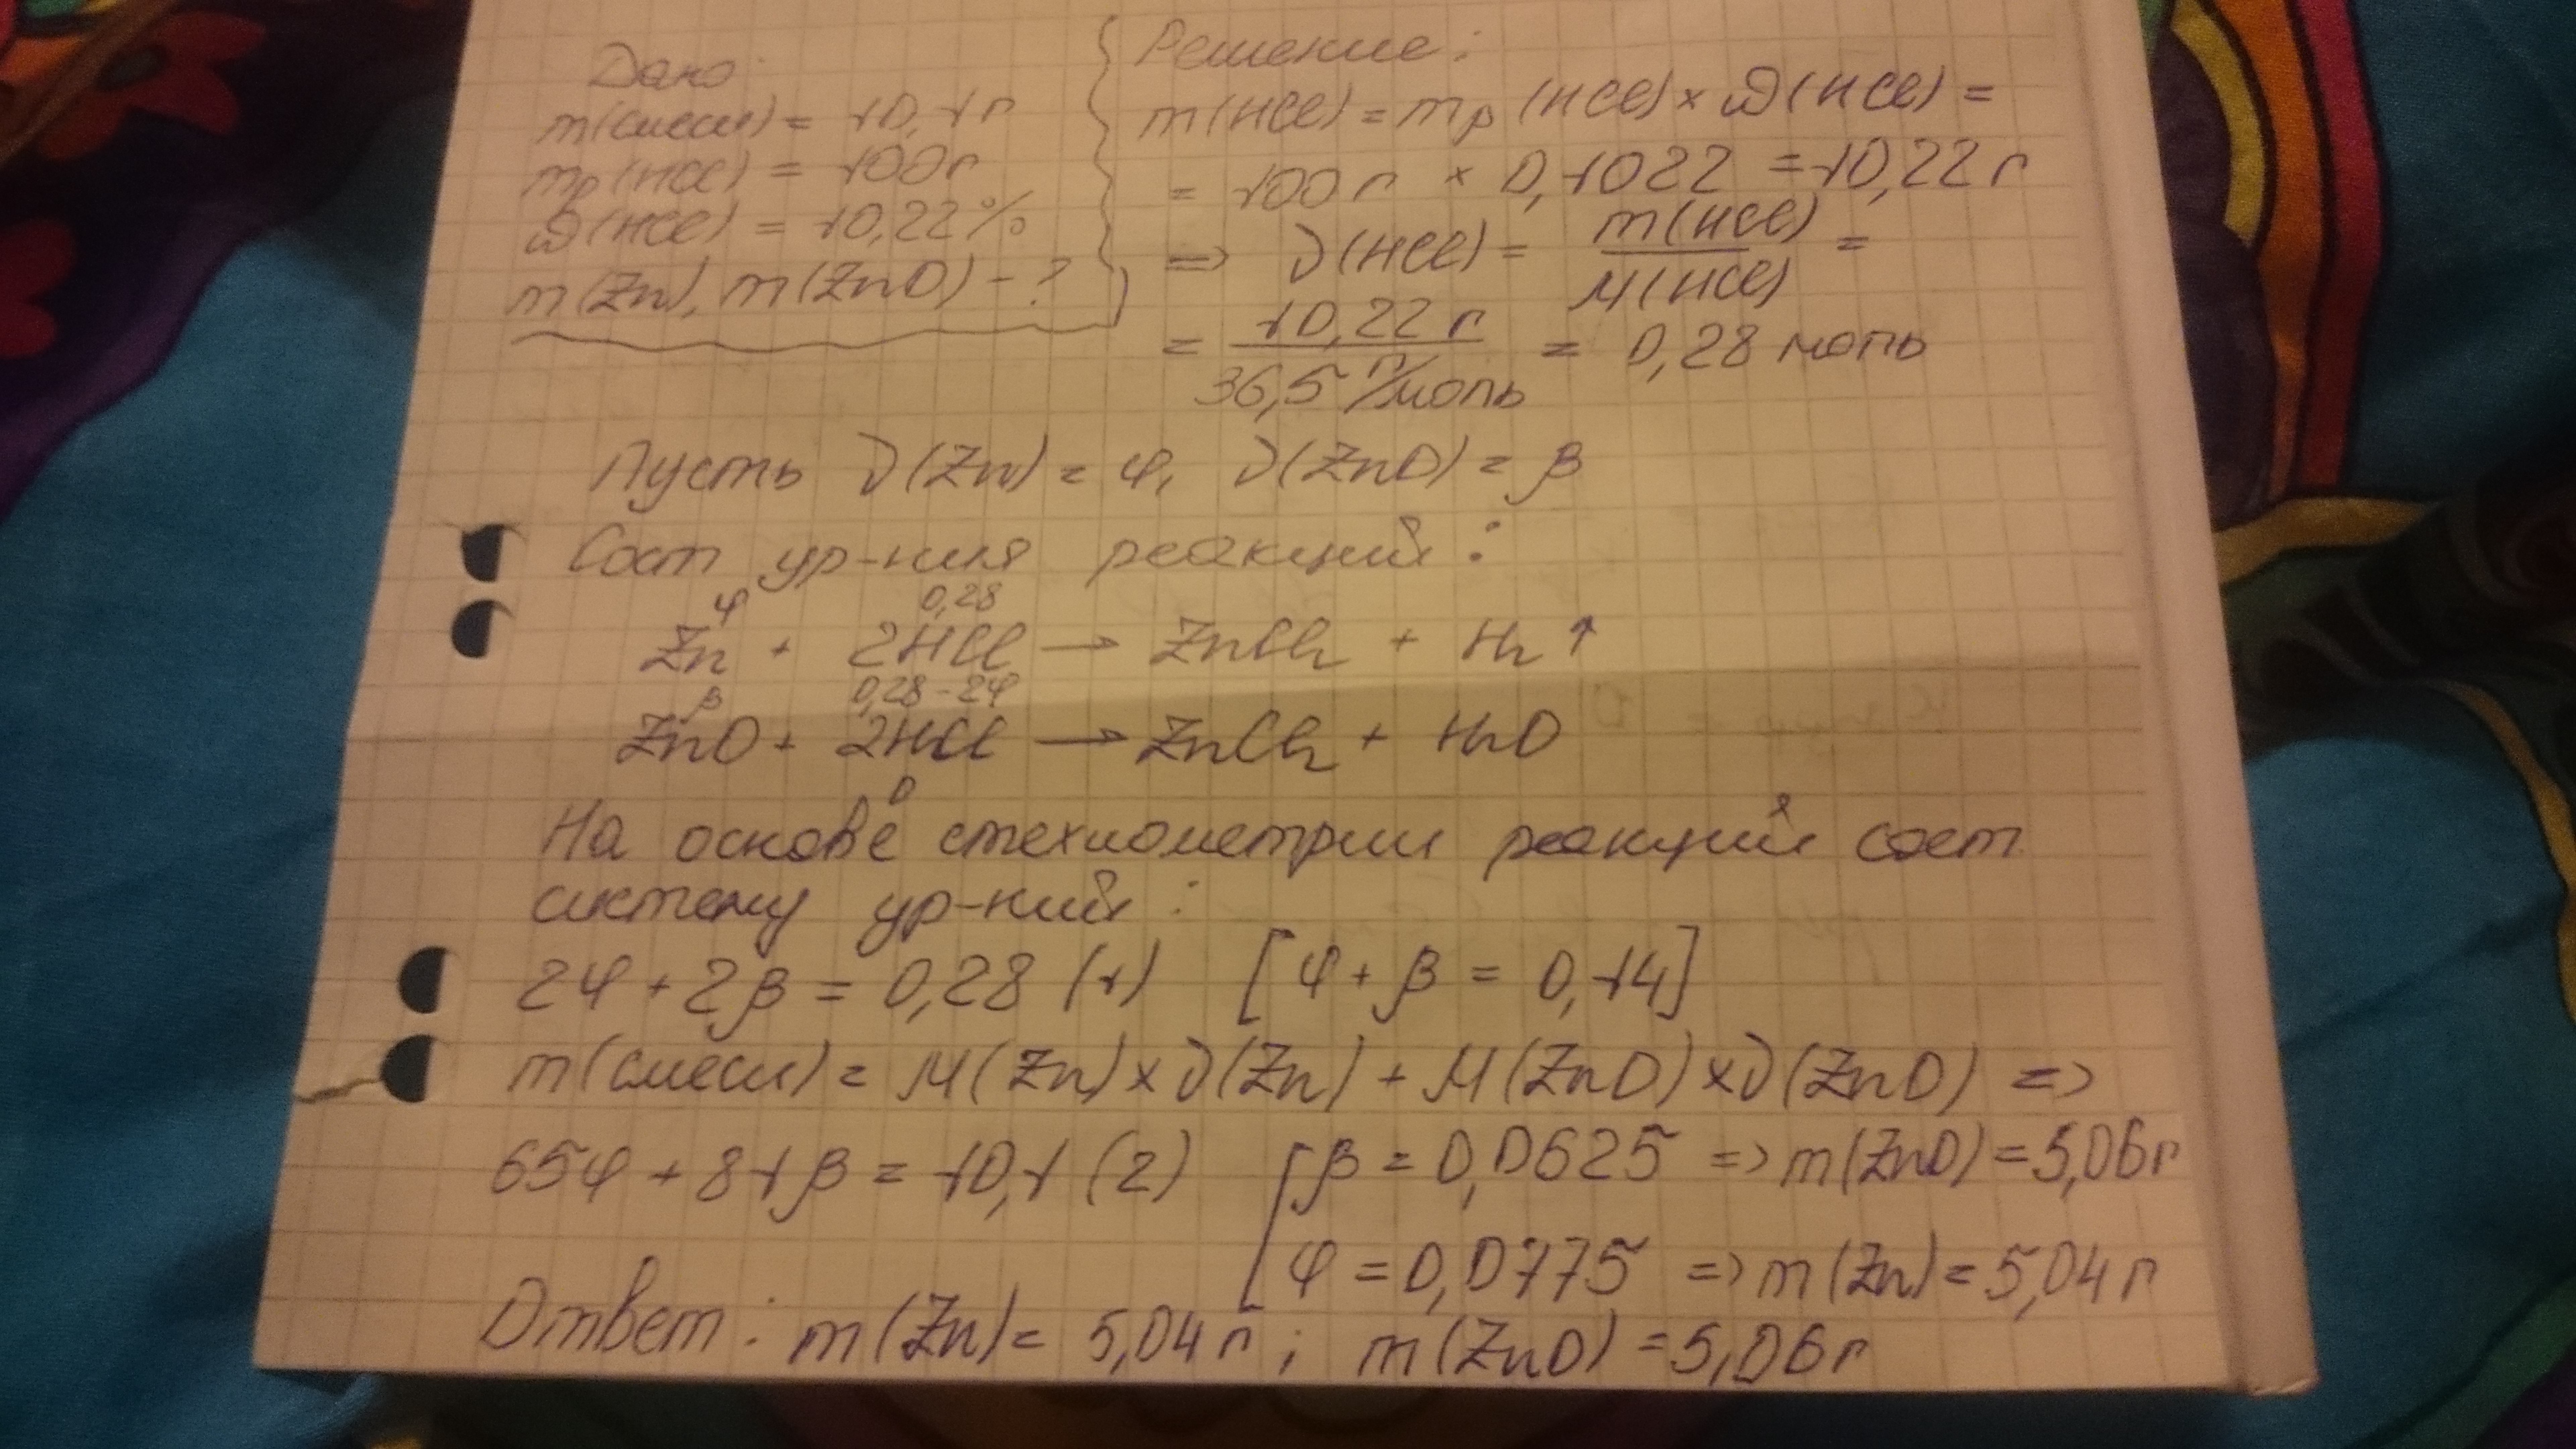 Дано:
m(смеси) = 10,1г
mр(HCl) = 100г
ω(HCl) = 10,22%
m(Zn), m(ZnO) - ?
Решение:
m(HCl) = mр (HCl) × ω(HCl) =
= 100г × 0,1022 = 10,22г
=> ν(HCl) = m(HCl) / M(HCl) =
= 10,22 г / 36,5 г/моль = 0,28 моль
Пусть ν(Zn) = φ, ν(ZnO) = β
Сост ур-ния реакций:
φ 0,28
Zn + 2HCl → ZnCl₂ + H₂ ↑
β 0,28-2φ
ZnO + 2HCl → ZnCl₂ + H₂O
На основе стехиометрии реакций сост
систему ур-ний:
2φ + 2β = 0,28 (1) [φ + β = 0,14]
m(смеси) = M(Zn)×ν(Zn) + M(ZnO)×ν(ZnO) =>
65φ + 81β = 10,1 (2) [β = 0,0625 => m(ZnO) = 5,06г
φ = 0,0775 => m(Zn) = 5,04г
Ответ: m(Zn) = 5,04г; m(ZnO) = 5,06г